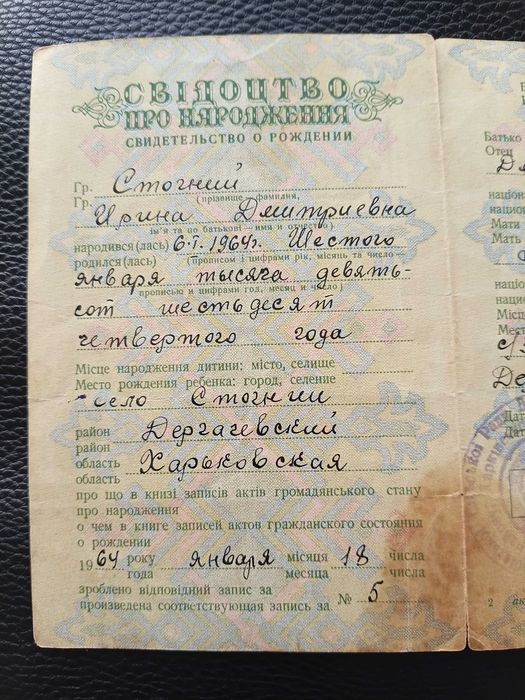 СВІДОЦТВО
ПРО НАРОДЖЕННЯ
СВИДЕТЕЛЬСТВО О РОЖДЕНИИ
Гр. Стогний
Гр. (прізвище, фамилия,
Ирина Дмитриевна
ім'я та по батькові — имя и отчество)
народився(лась) 6.I.1964г. Шестого
родился(лась) (прописом і цифрами рік, місяць та число —
января тысяча девять-
прописью и цифрами год, месяц и число)
сот шестьдесят
четвертого года
Місце народження дитини: місто, селище
Место рождения ребенка: город, селение
село Стогнии
район
район Дергачевский
область
область Харьковская
про що в книзі записів актів громадянського стану
про народження
о чем в книге записей актов гражданского состояния
о рождении
1964 року января місяця 18 числа
года месяца числа
зроблено відповідний запис за
произведена соответствующая запись за № 5
Батько
Отец
націона
Мати
Мать
націона
Місце
Мест
Дата
Дат
2